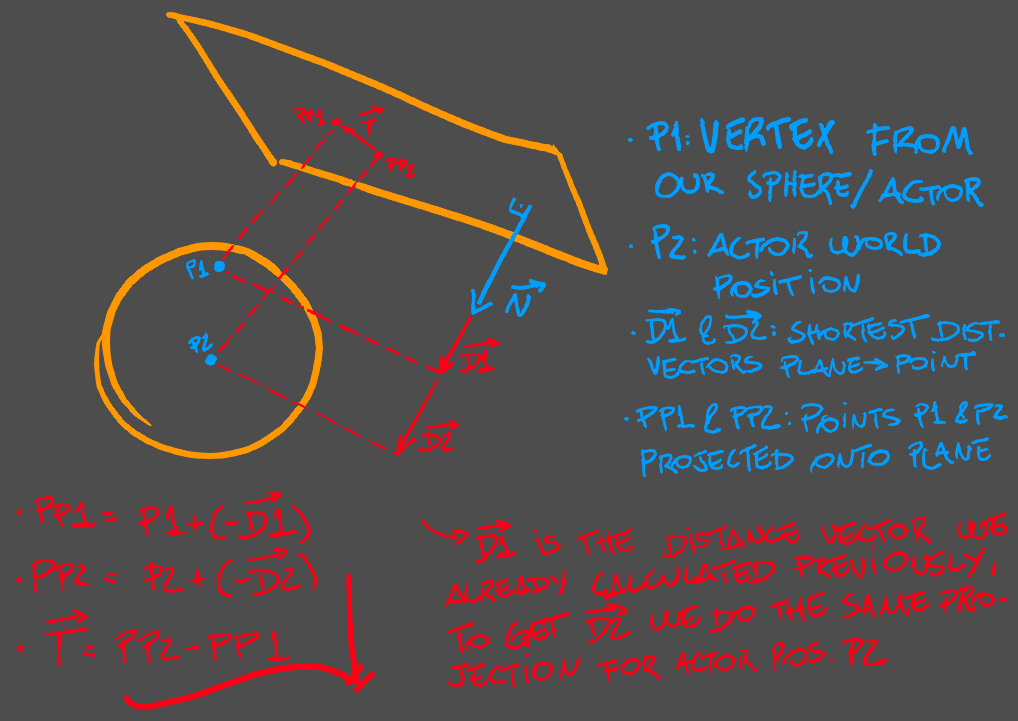 PP1
T
PP2
P1
P2
N
D1
D2
· P1: VERTEX FROM
OUR SPHERE/ACTOR
· P2: ACTOR WORLD
POSITION
· D1 & D2: SHORTEST DIST.
VECTORS PLANE→POINT
· PP1 & PP2: POINTS P1 & P2
PROJECTED ONTO PLANE
· PP1 = P1+(-D1)
· PP2 = P2+(-D2)
· T = PP2-PP1
→ D1 IS THE DISTANCE VECTOR WE
ALREADY CALCULATED PREVIOUSLY,
TO GET D2 WE DO THE SAME PRO-
JECTION FOR ACTOR POS. P2